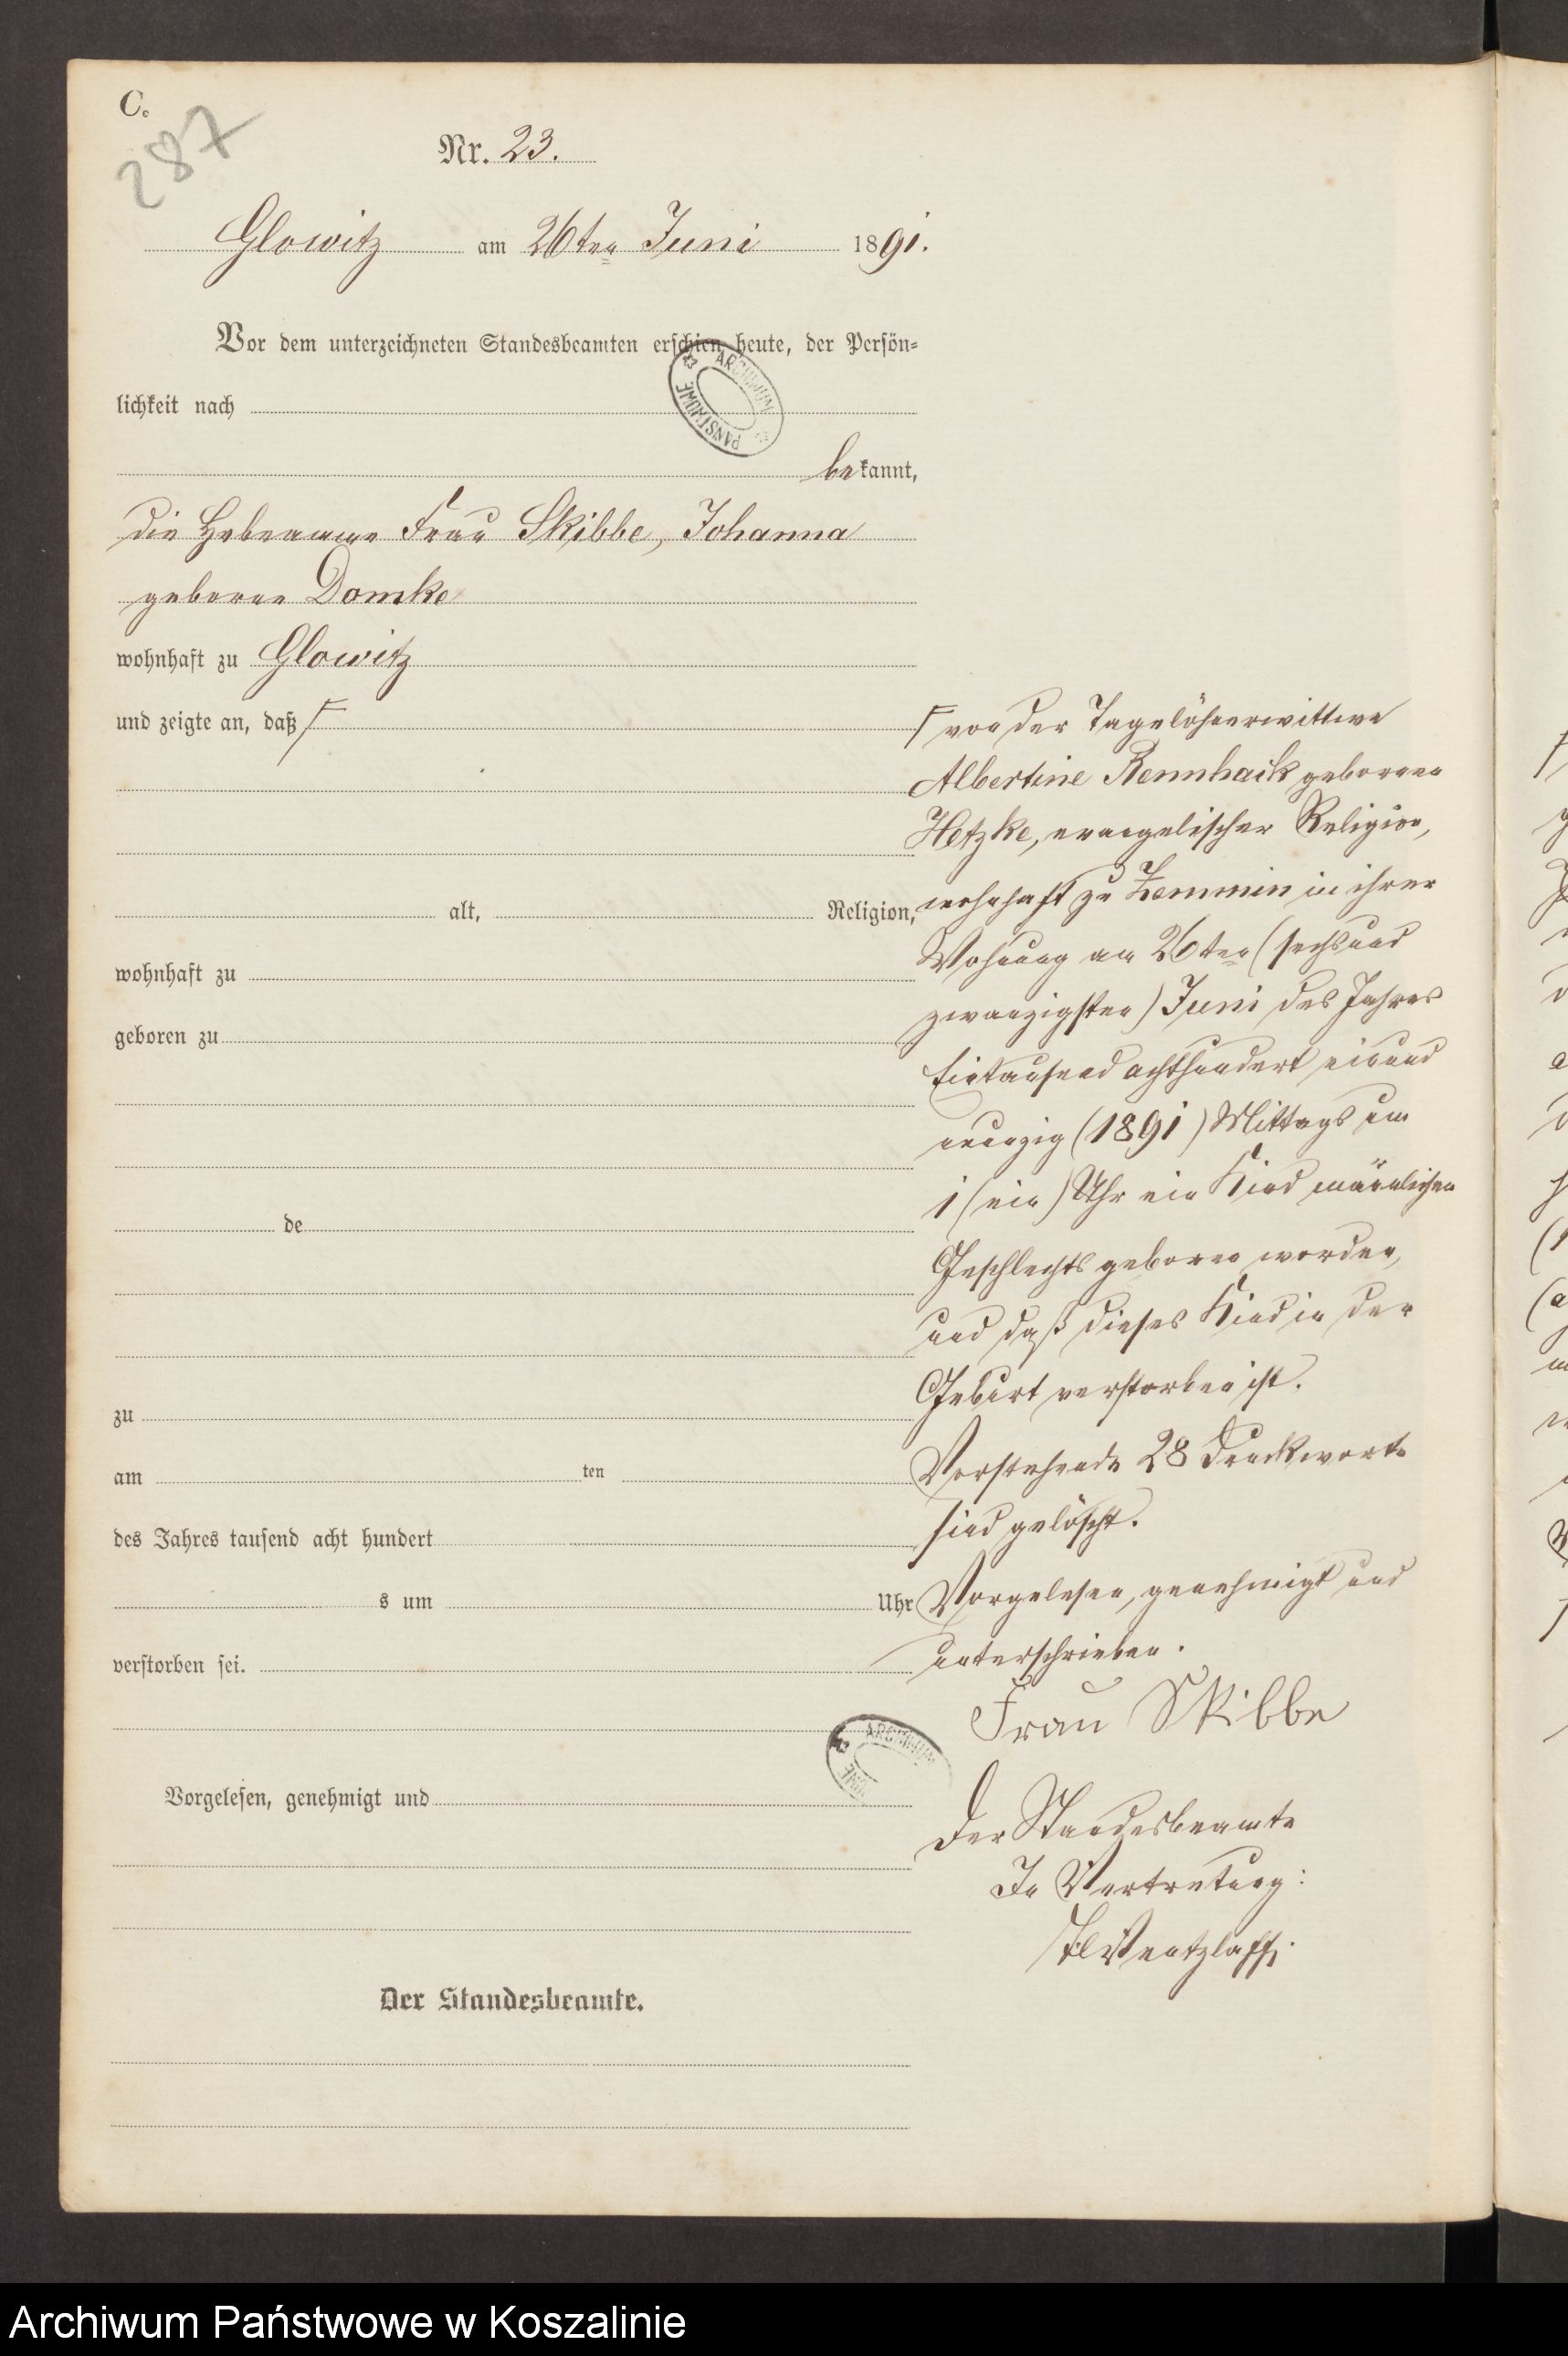 C.
287
Nr. 23.
Glowitz am 26ten Juni 1891.
Vor dem unterzeichneten Standesbeamten erschien heute, der Persön-
lichkeit nach
bekannt,
die Hebeamme Frau Skibbe, Johanna
geborne Domke
wohnhaft zu Glowitz
und zeigte an, daß
von der Tagelöhnerwittwe
Albertine Rennhack geborenen
Hetzke, evangelischer Religion,
alt, Religion,
wohnhaft zu Zemmin in ihrer
wohnhaft zu
Wohnung am 26ten (sechsund
zwanzigsten) Juni des Jahres
geboren zu
Eintausend achthundert einund
neunzig (1891) Mittags um
1 (ein) Uhr ein Kind männlichen
de
Geschlechts geboren worden,
und daß dieses Kind in der
Geburt verstorben ist.
zu
Vorstehende 28 Druckworte
am ten
sind gelöscht.
des Jahres tausend acht hundert
s um Uhr
Vorgelesen, genehmigt und
unterschrieben.
verstorben sei.
Frau Skibbe
ARCHIWUM PAŃSTWOWE
ARCHIWUM
Vorgelesen, genehmigt und
Der Standesbeamte
In Vertretung:
Wentzlaff.
Der Standesbeamte.
Archiwum Państwowe w Koszalinie